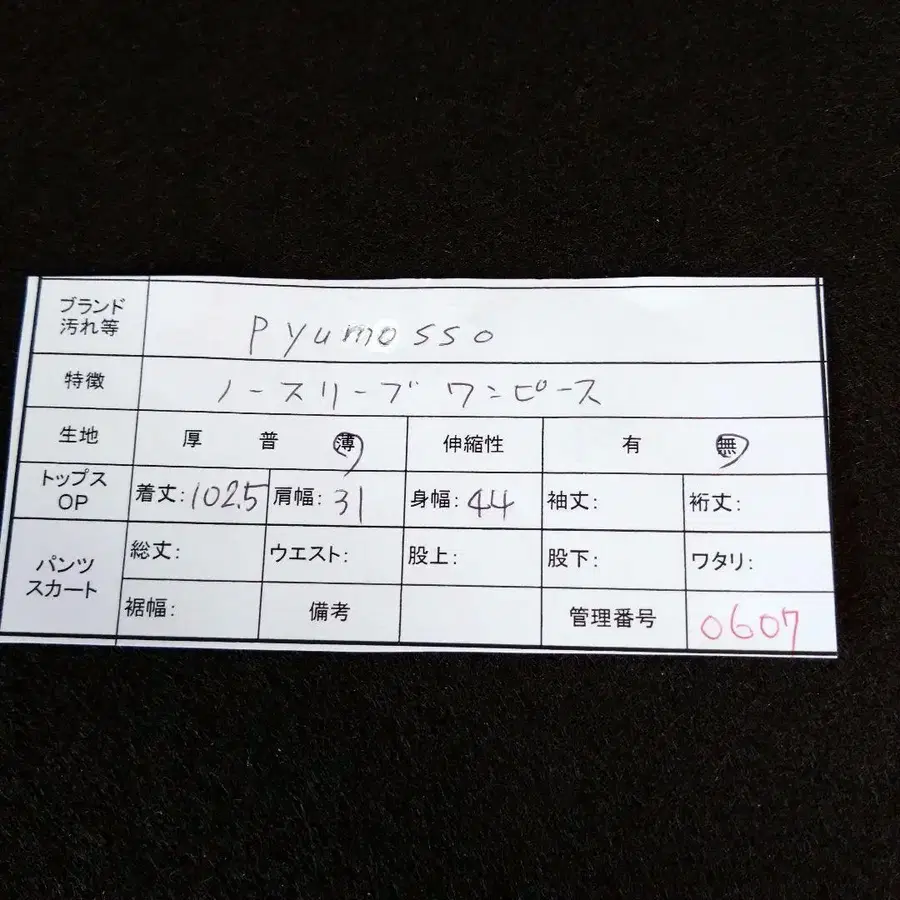 ブランド
汚れ等
pyumosso
特徴 ノースリーブ ワンピース
生地 厚 普 薄 伸縮性 有 無
トップス
OP
着丈:102.5 肩幅:31 身幅:44 袖丈: 裄丈:
パンツ
スカート
総丈: ウエスト: 股上: 股下: ワタリ:
裾幅: 備考 管理番号 0607